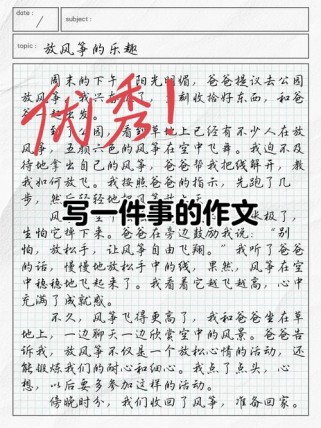 date :
/
topic : 放风筝的乐趣
周末的下午,阳光明媚,爸爸提议去公园
放风筝。我兴
刻收拾好东西,和爸
出发。
优秀!
公园,看到草地上已经有不少人在放
风筝,五颜六色的风筝在空中飞舞。我迫不及
待地拿出自己的风筝,爸爸帮我把线解开,教
我如何放飞。我按照爸爸的指示,先跑了几
步,然后
写一件事的作文
张极了,
生怕它摔下来。爸爸在旁边鼓励我说:“别
怕,放松手,让风筝自由飞翔。”我听了爸爸
的话,慢慢地放松手中的线,果然,风筝在空
中稳稳地飞起来了。我看着它越飞越高,心中
充满了成就感。
不久,风筝飞得更高了,我和爸爸坐在草
地上,一边聊天一边欣赏空中的风景。爸爸告
诉我,放风筝不仅是一个放松心情的活动,还
能锻炼我们的耐心和细心。我点了点头,心
想,以后要多参加这样的活动。
傍晚时分,我们收回了风筝,准备回家。